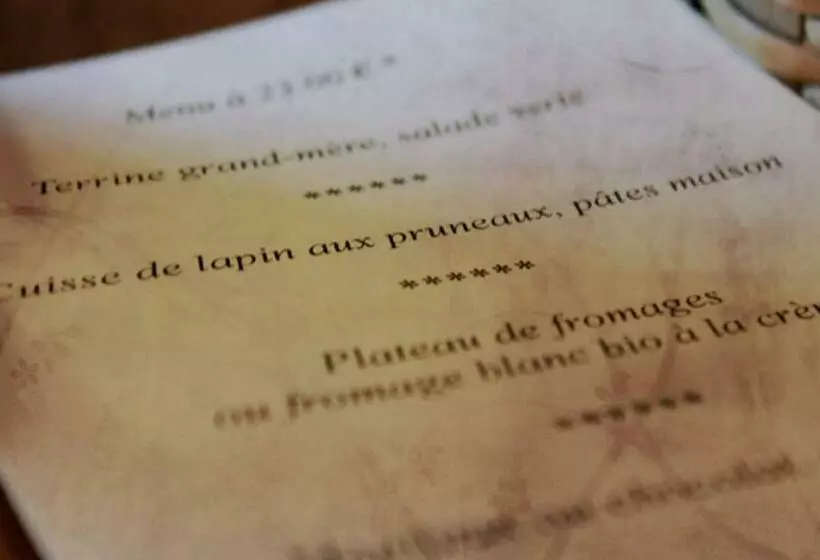 Menu à 23.00 € *
Terrine grand-mère, salade verte
******
Cuisse de lapin aux pruneaux, pâtes maison
******
Plateau de fromages
ou fromage blanc bio à la
******
au chocolat